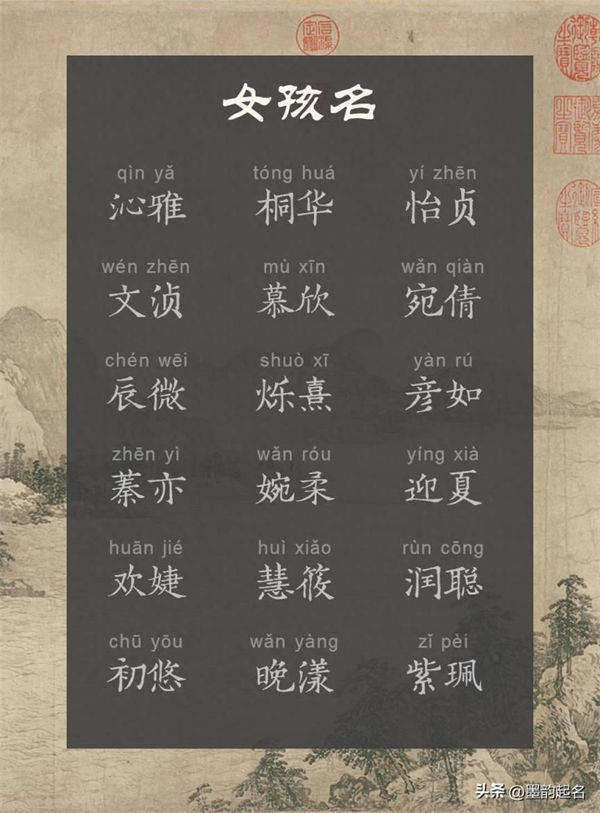 女孩名
qìn yǎ tóng huá yí zhēn
沁雅 桐华 怡贞
wén zhēn mù xīn wǎn qiàn
文浈 慕欣 宛倩
chén wēi shuò xī yàn rú
辰微 烁熹 彦如
zhēn yì wǎn róu yíng xià
蓁亦 婉柔 迎夏
huān jié huì xiǎo rùn cōng
欢婕 慧筱 润聪
chū yōu wǎn yàng zǐ pèi
初悠 晚漾 紫珮
头条 @墨韵起名